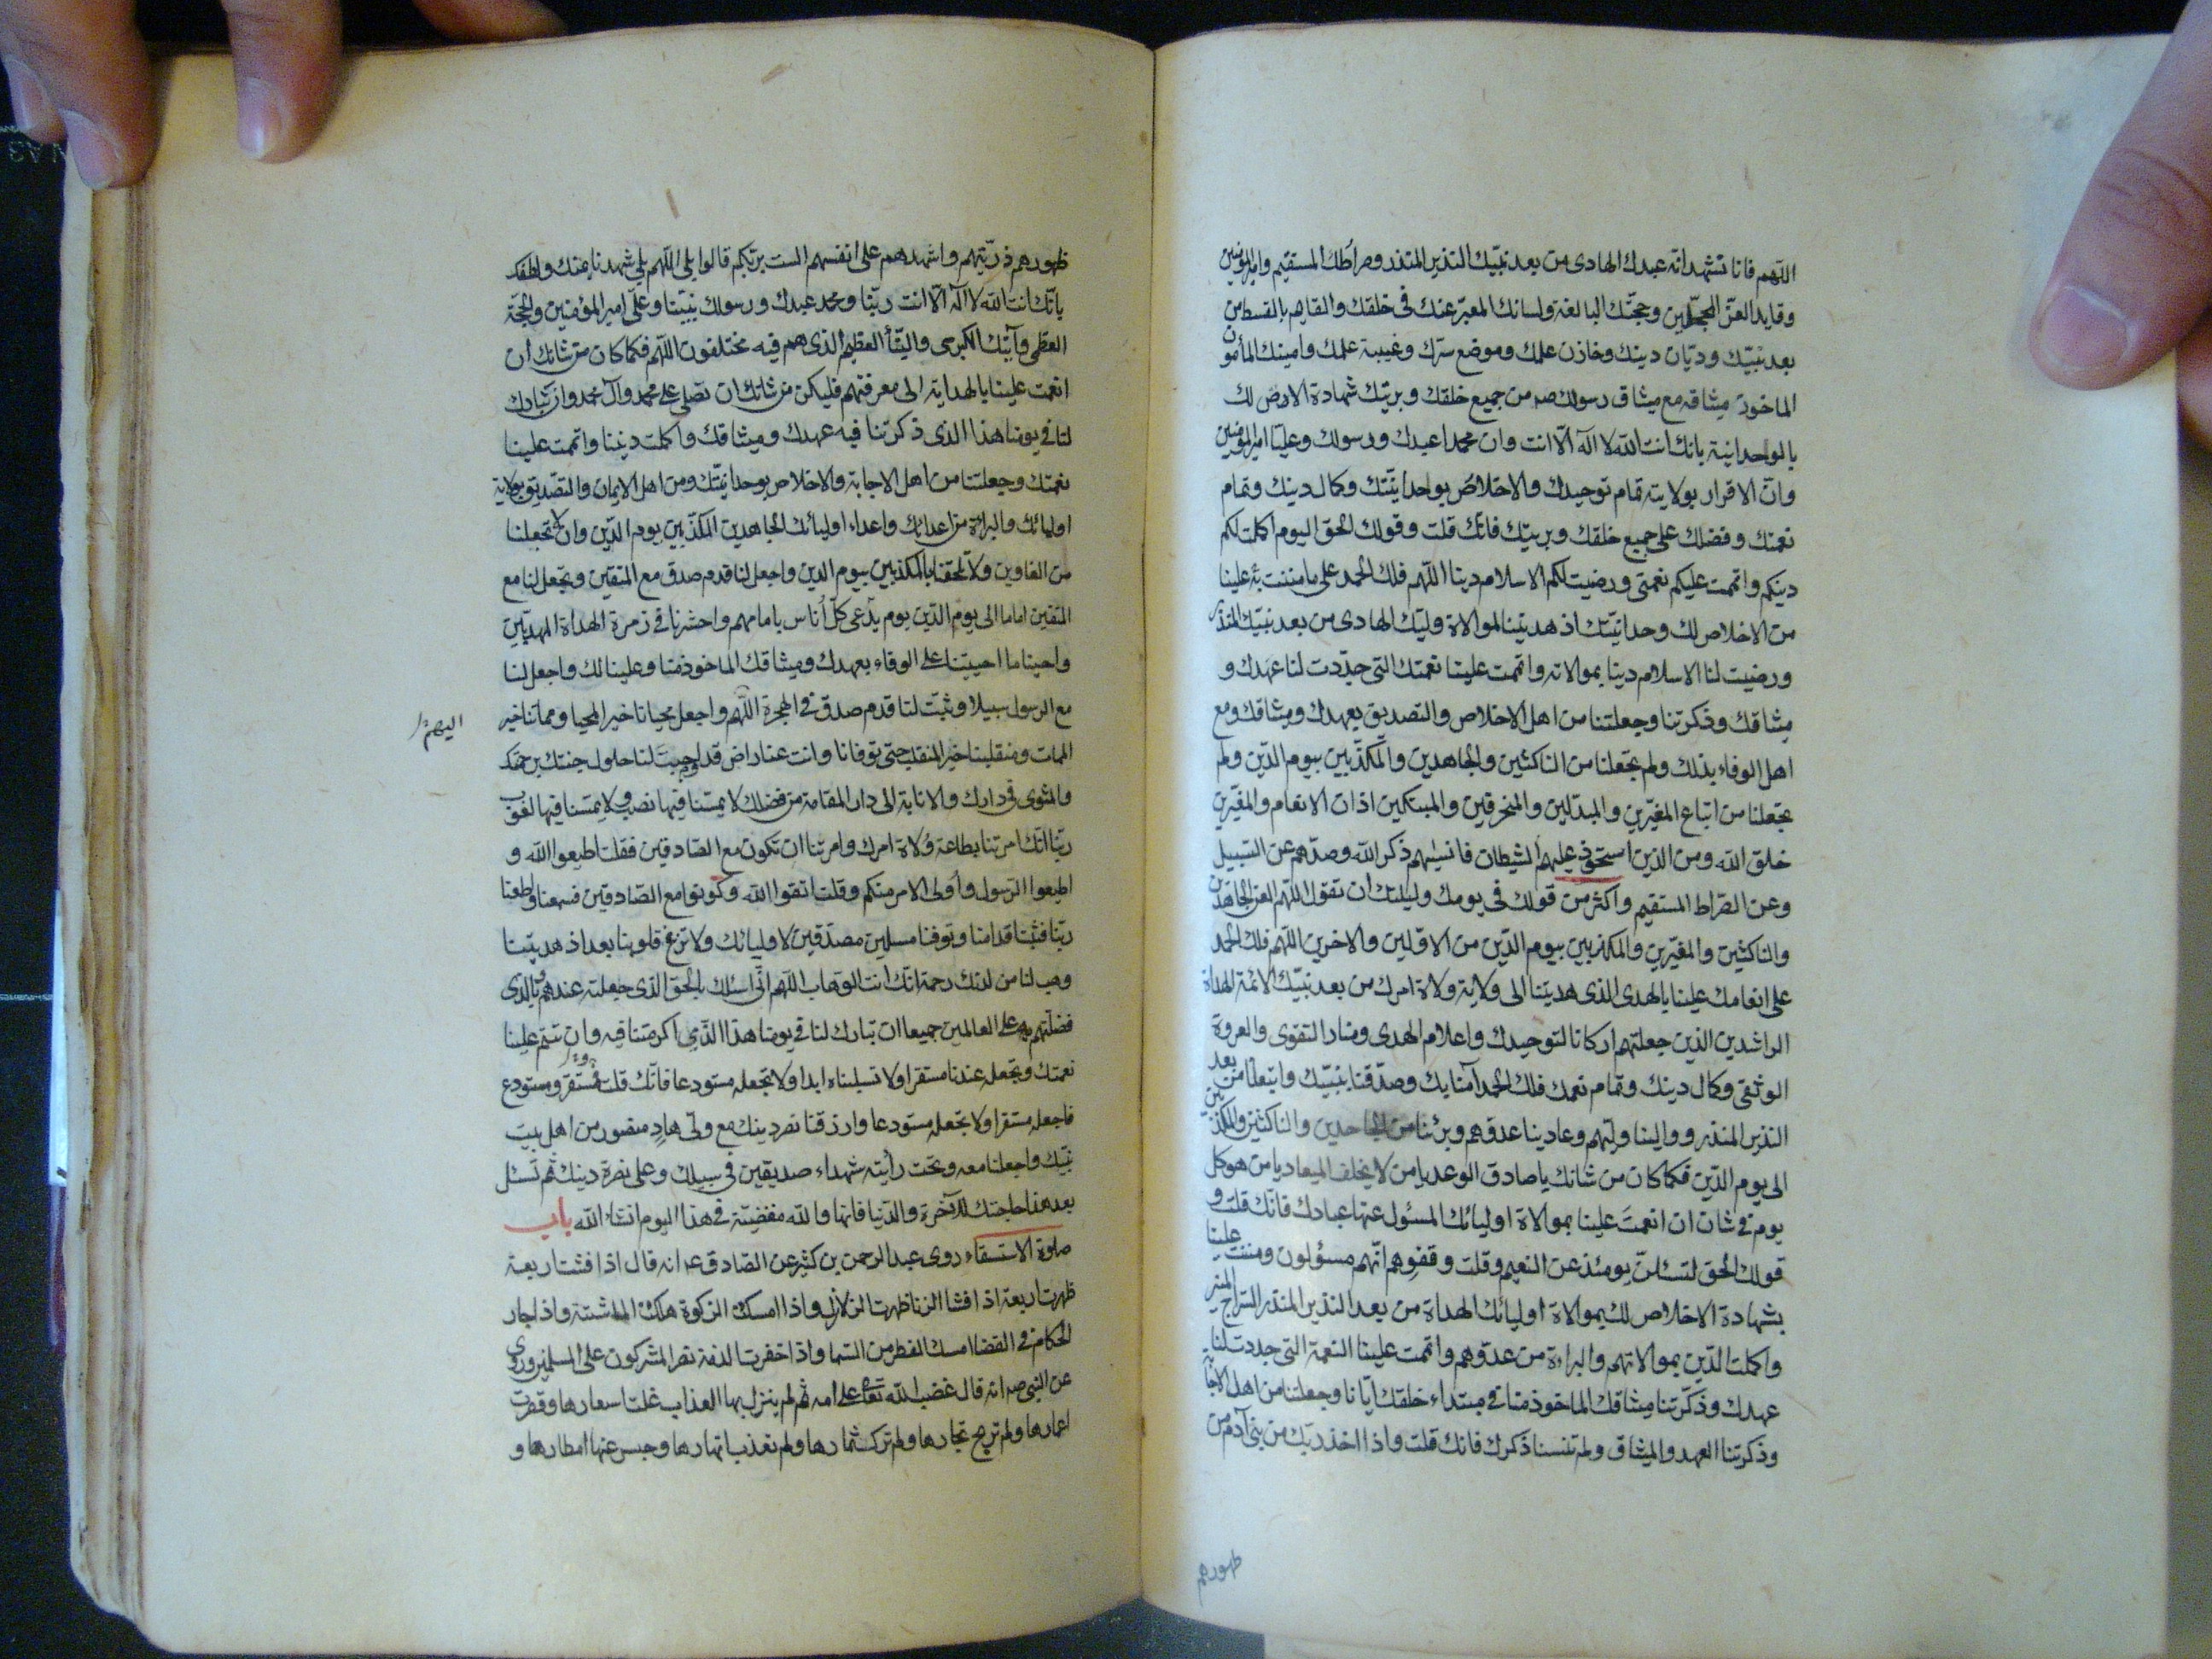 اللهم فانا نشهد انه عبدك الهادى من بعد نبيّك النذير المنذر وصراطك المستقيم وامير المؤمنين
وقايد الغرّ المحجّلين وحجّتك البالغة ولسانك المعبّر عنك فى خلقك والقايم بالقسط من
بعد نبيّك وديّان دينك وخازن علمك وموضع سرّك وعيبة علمك وامينك المأمون
الماخوذ ميثاقه مع ميثاق رسولك صم من جميع خلقك وبريّتك شهادة الاخلاص لك
بالوحدانية بانك انت الله لا اله الا انت وان محمدا عبدك ورسولك وعليّا امير المؤمنين
وانّ الاقرار بولايته تمام توحيدك والاخلاص بوحدانيّتك وكمال دينك وتمام
نعمتك وفضلك على جميع خلقك وبريتك فانّك قلت وقولك الحق اليوم اكملت لكم
دينكم واتممت عليكم نعمتى ورضيت لكم الاسلام دينا اللهم فلك الحمد على ما مننت به علينا
من الاخلاص لك وحدانيّتك اذ هديتنا لموالاة وليّك الهادى من بعد نبيّك المنذر
ورضيت لنا الاسلام دينا بموالاته واتممت علينا نعمتك التى جدّدت لنا عهدك و
ميثاقك وذكرتنا وجعلتنا من اهل الاخلاص والتصديق بعهدك وميثاقك ومع
اهل الوفاء بذلك ولم تجعلنا من الناكثين والجاهدين والمكذّبين بيوم الدّين ولم
تجعلنا من اتباع المغيّرين والمبدّلين والمنحرفين والمبتكين اذان الانعام والمغيّرين
خلق الله ومن الذين استحوذ عليهم الشيطان فانسيهم ذكر الله وصدّهم عن السّبيل
وعن الصّراط المستقيم واكثر من قولك فى يومك وليلتك ان تقول اللهم العن الجاهدين
والناكثين والمغيّرين والمكذبين بيوم الدّين من الاوّلين والاخرين اللهم فلك الحمد
على انعامك علينا بالهدى الذى هديتنا الى ولاية ولاة امرك من بعد نبيّك الائمة الهداة
الراشدين الذين جعلتهم اركانا لتوحيدك واعلام الهدى ومنار التقوى والعروة
الوثقى وكمال دينك وتمام نعمك فلك الحمد آمنا بك وصدّقنا بنبيّك واتبعنا من بعد
النذير المنذر ووالينا وليّهم وعادينا عدوّهم وبرئنا من الجاحدين والناكثين والمكذبين
الى يوم الدّين فكما كان من شانك يا صادق الوعد يا من لا يخلف الميعاد يا من هو كل
يوم فى شان ان انعمت علينا بموالاة اوليائك المسئول عنها عبادك فانّك قلت و
قولك الحق لتسئلنّ يومئذ عن النعيم وقلت وقفوهم انّهم مسؤلون ومننت علينا
بشهادة الاخلاص لك بموالاة اوليائك الهداة من بعد النذير المنذر السّراج المنير
واكملت الدّين بموالاتهم والبراءة من عدوّهم واتممت علينا النعمة التى جددت لنا
عهدك وذكّرتنا ميثاقك الماخوذ منا فى مبتداء خلقك ايّانا وجعلتنا من اهل الاجابة
وذكرتنا العهد والميثاق ولم تنسنا ذكرك فانك قلت واذا اخذ ربّك من بنى آدم من
ظهورهم
ظهورهم ذرّيتهم واشهدهم على انفسهم الست بربّكم قالوا بلى اللهم بلى شهدنا بمنك ولطفك
بانّك انت الله لا اله الّا انت ربّنا ومحمد عبدك ورسولك نبيّنا وعلىّ امير المؤمنين والحجّة
العظمى وآيتك الكبرى والنبأ العظيم الذى هم فيه مختلفون اللهم فكما كان من شانك ان
انعمت علينا بالهداية الى معرفتهم فليكن من شانك ان تصلى على محمد وآل محمد وان تبارك
لنا فى يومنا هذا الذى ذكرتنا فيه عهدك وميثاقك واكملت ديننا واتممت علينا
نعمتك وجعلتنا من اهل الاجابة والاخلاص بوحدانيّتك ومن اهل الايمان والتصديق بولاية
اوليائك والبراءة من اعدائك واعداء اوليائك الجاهدين المكذّبين بيوم الدّين وان لا تجعلنا
من الغاوين ولا تلحقنا بالمكذبين بيوم الدين واجعل لنا قدم صدق مع المتقين وتجعل لنا مع
المتقين اماما الى يوم الدّين يوم يدعى كلّ اُناس بامامهم واحشرنا فى زمرة الهداة المهديّين
واحينا ما احييتنا على الوفاء بعهدك وميثاقك الماخوذ منا وعلينا لك واجعل لنا
مع الرسول سبيلا وثبّت لنا قدم صدق فى الهجرة اللهم واجعل محيانا خير المحيا ومماتنا خير
اليهم
الممات ومنقلبنا خير المنقلب حتى توفانا وانت عنا راض قد اوجبت لنا حلول جنتك برحمتك
والمثوى فى دارك والانابة الى دار المقامة من فضلك لا يمسّنا فيها نصب ولا يمسّنا فيها لغوب
ربّنا انّك امرتنا بطاعة وُلاة امرك وامرتنا ان نكون مع الصّادقين فقلت اطيعوا الله و
اطيعوا الرّسول واولى الامر منكم وقلت اتقوا الله وكونوا مع الصّادقين فسمعنا واطعنا
ربّنا فثبّت اقدامنا وتوفّنا مسلمين مصدّقين لاوليائك ولا تزغ قلوبنا بعد اذ هديتنا
وهب لنا من لدنك رحمة انّك انت الوهاب اللهم انّى اسئلك بالحق الذى جعلته عندهم وبالذى
فضلتهم به على العالمين جميعا ان تبارك لنا فى يومنا هذا الّذى اكرمتنا فيه وان تتم علينا
نعمتك وتجعله عندنا مستقرا ولا تسلبناه ابدا ولا تجعله مستودعا فانّك قلت فمستقر ومستودع
فاجعله مستقرا ولا تجعله مستودعا وارزقنا نصر دينك مع ولىّ هادٍ منصور من اهل بيت
نبيّك واجعلنا معه وتحت رأيته شهداء صديقين فى سبيلك وعلى نصرة دينك ثم تسئل
بعد هذا حاجتك للآخرة والدّنيا فانها والله مقضيّة فى هذا اليوم انشاء الله باب
صلوة الاستسقاء روى عبد الرحمن بن كثير عن الصّادق عم انه قال اذا فشت اربعة
ظهرت اربعة اذا فشا الزنا ظهرت الزلازل واذا امسكت الزكوة هلكت الماشية واذا جار
الحكام فى القضا امسك القطر من السّما واذا خفرت الذمة نصر المشركون على المسلمين وروى
عن النبى صم انه قال غضب الله تعالى على امه ثم لم ينزل بها العذاب غلت اسعارها وقصرت
اعمارها ولم تربح تجارها ولم تزك ثمارها ولم تعذب انهارها وحبس عنها امطارها و